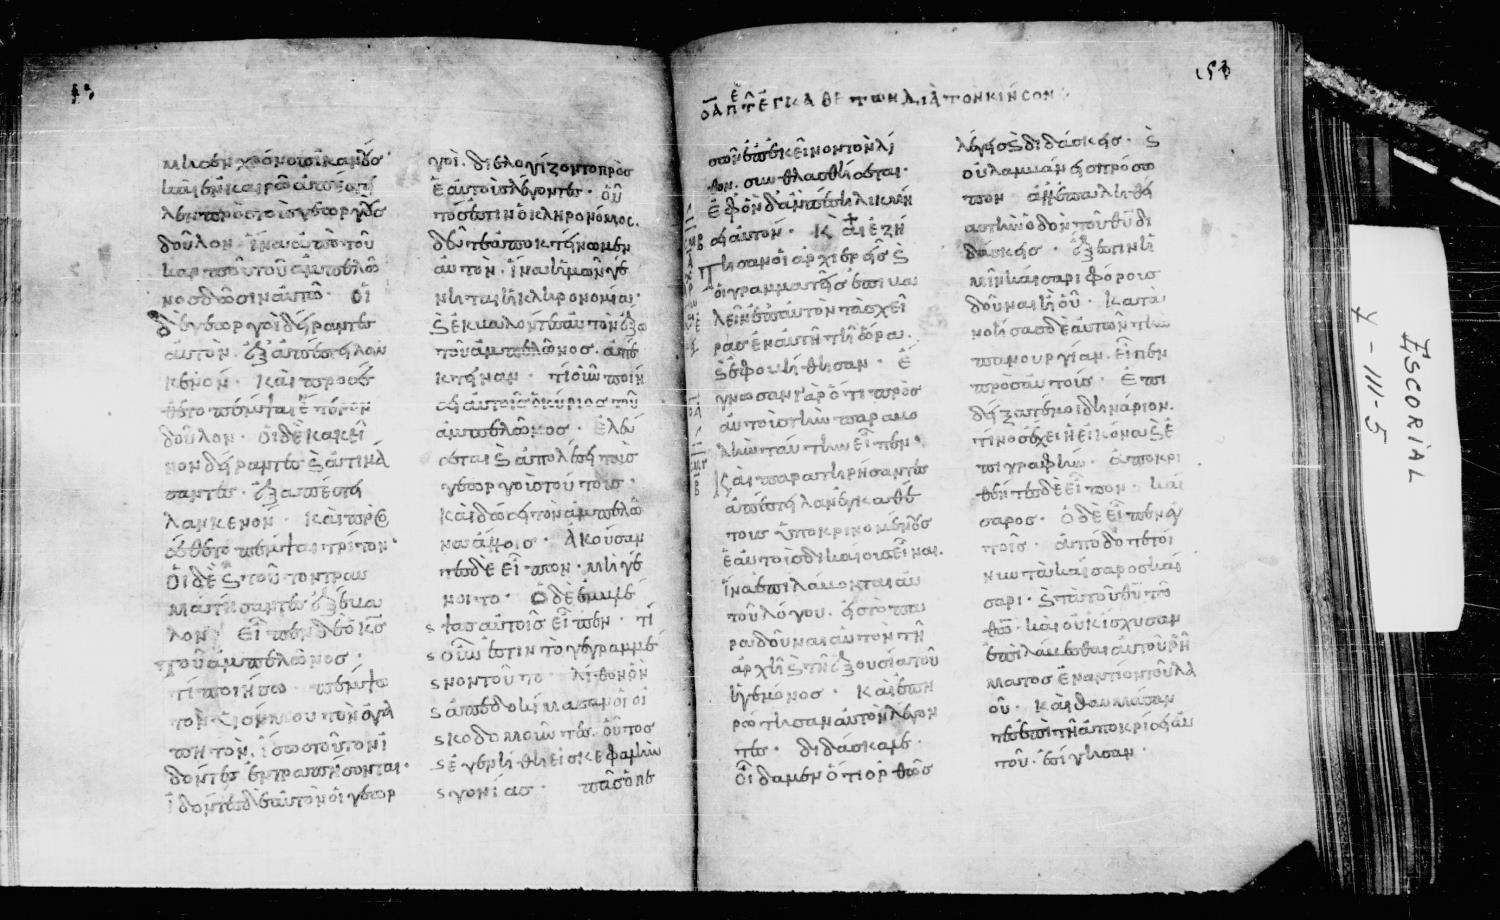 μησεν χρόνους ἱκανούς
καὶ ἐν καιρῶ ἀπέστει
λεν πρὸς τοὺς γεωργοὺς
δοῦλον ἵνα ἀπὸ τοῦ
καρποῦ τοῦ ἀμπελῶ
νος δώσιν αὐτῶ· οἱ
δὲ γεωργοὶ δείραντες
αὐτὸν· ἐξαπέστειλαν
κενόν· καὶ προσέ
θετο πέμψαι ἕτερον
δοῦλον· οἱ δὲ κακεῖ
νον δείραντες καὶ ἀτιμά
σαντες· ἐξαπέστει
λαν κενόν· καὶ προσ
έθετο πέμψαι τρίτον·
Οἱ δὲ καὶ τοῦτον τραυ
ματίσαντες ἐξέβα
λον· εἶπεν δὲ ὁ κς
τοῦ ἀμπελῶνος·
τί ποιήσω· πέμψω
τὸν υἱόν μου τὸν ἀγα
πητόν· ἴσως τοῦτον ἰ
δόντες ἐντραπήσονται·
Ἰδόντες δὲ αὐτὸν οἱ γεωρ
γοὶ· διελογίζοντο πρὸς
ἑαυτοὺς λέγοντες· οὗ
τός ἐστιν ὁ κληρονόμος·
δεῦτε ἀποκτείνωμεν
αὐτὸν· ἵνα ἡμῶν γέ
νηται ἡ κληρονομία·
καὶ ἐκβαλόντες αὐτὸν ἔξω
τοῦ ἀμπελῶνος· ἀπέ
κτειναν· τί οὖν ποιή
σει αὐτοῖς ὁ κύριος τοῦ
ἀμπελῶνος· ἐλεύ
σεται καὶ ἀπολέσει τοὺς
γεωργοὺς τούτους·
καὶ δώσει τὸν ἀμπελῶ
να ἄλλοις· Ἀκούσαν
τες δὲ εἶπον· μὴ γέ
νοιτο· Ὁ δὲ ἐμβλέ
ψας αὐτοῖς εἶπεν· τί
οὖν ἐστιν τὸ γεγραμμέ
νον τοῦτο· λίθον ὃν
ἀπεδοκίμασαν οἱ οἰ
κοδομοῦντες· οὗτος
ἐγενήθη εἰς κεφαλὴν
γωνίας· πᾶς ὁ πε
σὼν ἐπ' ἐκεῖνον τὸν λί
θον· συνθλασθήσεται·
ἐφ' ὃν δ' ἂν πέση λικμή
σει αὐτόν· Καὶ ἐζή
τησαν οἱ ἀρχιερεῖς καὶ
οἱ γραμματεῖς ἐπιβα
λεῖν ἐπ' αὐτὸν τὰς χεῖ
ρας ἐν αὐτῆ τῆ ὥρα·
καὶ ἐφοβήθησαν· ἔ
γνωσαν γὰρ ὅτι πρὸς
αὐτοὺς τὴν παραβο
λὴν ταύτην εἶπεν·
Καὶ παρατηρήσαντες
ἀπέστειλαν ἐγκαθέ
τους ὑποκρινομένους
ἑαυτοὺς δικαίους εἶναι·
ἵνα ἐπιλάβωνται αὐ
τοῦ λόγου· εἰς τὸ πα
ραδοῦναι αὐτὸν τῆ
ἀρχῆ καὶ τῆ ἐξουσία τοῦ
ἡγεμόνος· Καὶ ἐπη
ρώτησαν αὐτὸν λέγον
τες· διδάσκαλε·
Οἴδαμεν ὅτι ὀρθῶς
λέγεις καὶ διδάσκεις· καὶ
οὐ λαμβάνεις πρόσω
πον ἀλλ' ἐπ' ἀληθεί
ας τὴν ὁδὸν τοῦ θυ δι
δάσκεις· ἔξεστιν ἡ
μῖν καίσαρι φόρους
δοῦναι ἢ οὔ· κατα
νοήσας δὲ αὐτῶν τὴν
πανουργίαν· εἶπεν
πρὸς αὐτούς· ἐπι
δείξατέ μοι δηνάριον·
τίνος ἔχει εἰκόνα καὶ ἐ
πιγραφήν· ἀποκρι
θέντες δὲ εἶπον· καί
σαρος· Ὁ δὲ εἶπεν αὐ
τοῖς· ἀπόδοτε τοί
νυν τὰ καίσαρος καί
σαρι· καὶ τὰ τοῦ θυ τῶ
θω· καὶ οὐκ ἴσχυσαν
ἐπιλαβέσθαι αὐτοῦ ῥή
ματος ἐναντίον τοῦ λα
οῦ· καὶ θαυμάσαν
τες ἐπὶ τῆ ἀποκρίσει αὐ
τοῦ· ἐσίγησαν·
ESCORIAL
Y-III-5